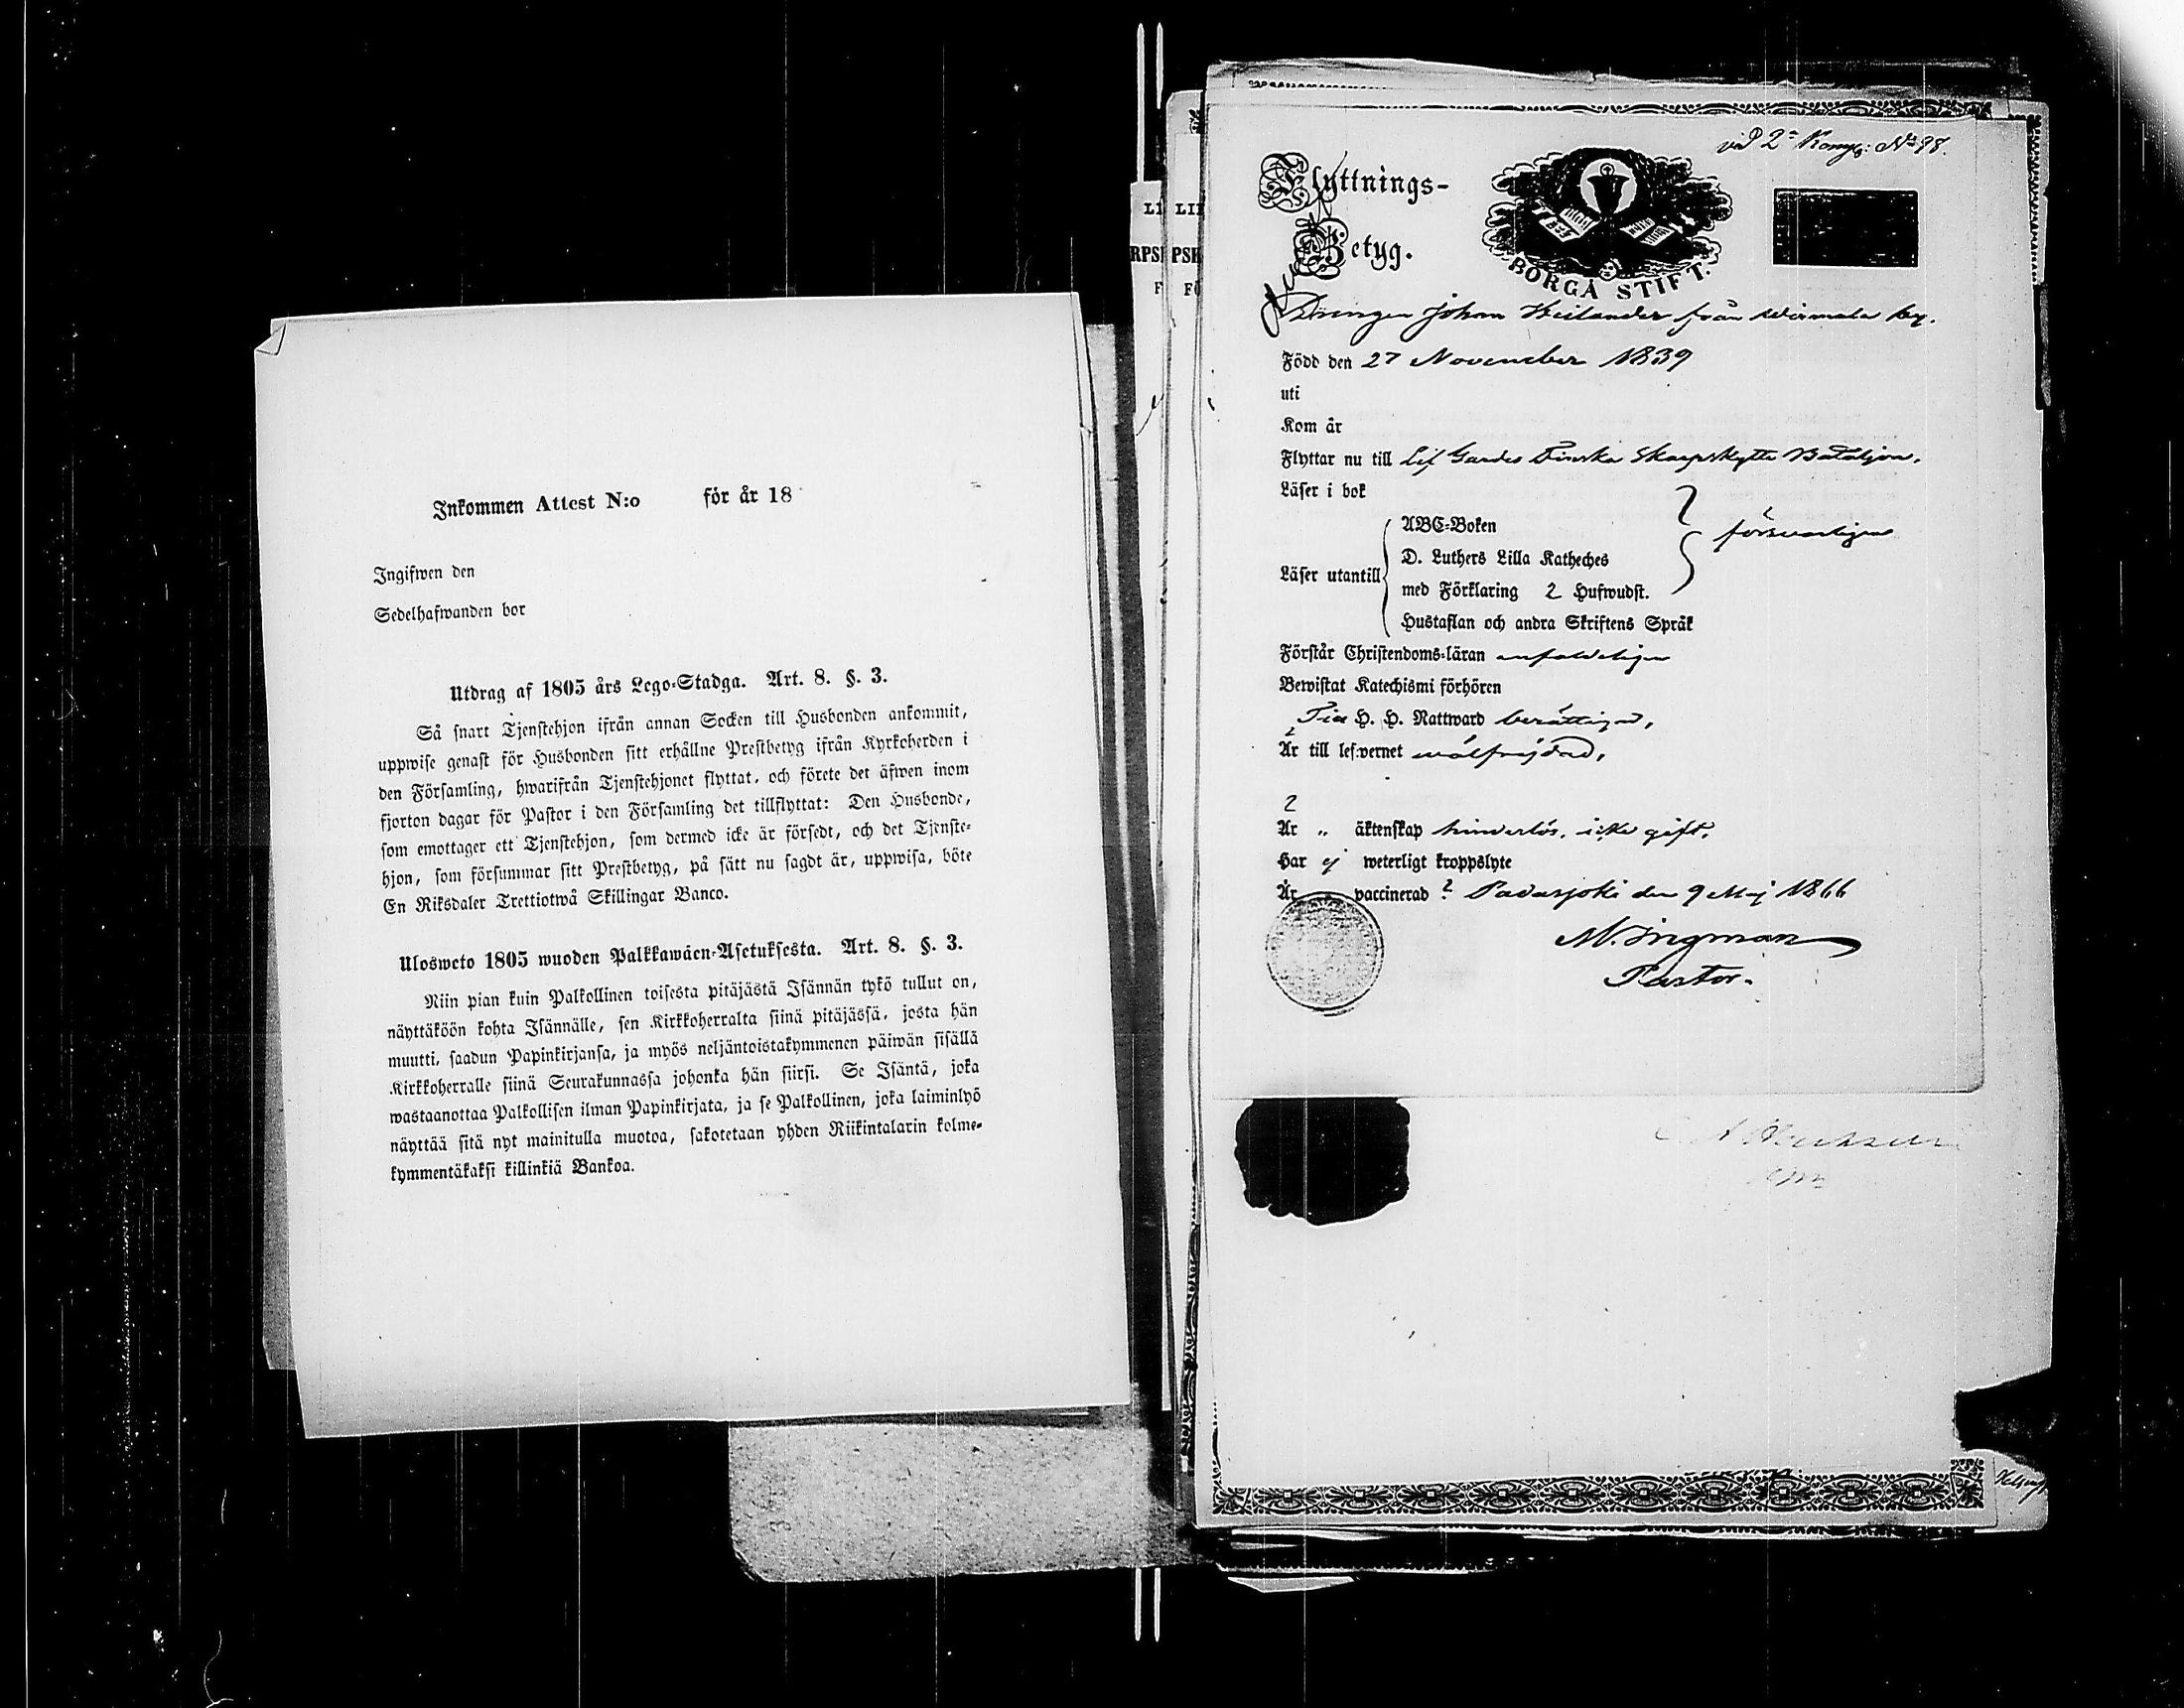 Inkommen Attest N:o för år 18
Ingifwen den
Sedelhafwanden bor
Utdrag af 1805 års Lego-Stadga. Art. 8. §. 3.
Så snart Tjenstehjon ifrån annan Socken till Husbonden ankommit,
uppwise genast för Husbonden sitt erhållne Prestbetyg ifrån Kyrkoherden i
den Församling, hwarifrån Tjenstehjonet flyttat, och förete det äfwen inom
fjorton dagar för Pastor i den Församling det tillflyttat: Den Husbonde,
som emottager ett Tjenstehjon, som dermed icke är försedt, och det Tjenste-
hjon, som försummar sitt Prestbetyg, på sätt nu sagdt är, uppwisa, böte
En Riksdaler Trettiotwå Skillingar Banco.
Ulosweto 1805 wuoden Palkkawäen-Asetuksesta. Art. 8. §. 3.
Niin pian kuin Palkollinen toisesta pitäjästä Isännän tykö tullut on,
näyttäköön kohta Isännälle, sen Kirkkoherralta siinä pitäjässä, josta hän
muutti, saadun Papinkirjansa, ja myös neljäntoistakymmenen päiwän sisällä
Kirkkoherralle siinä Seurakunnassa johonka hän siirsi. Se Isäntä, joka
wastaanottaa Palkollisen ilman Papinkirjata, ja se Palkollinen, joka laiminlyö
näyttää sitä nyt mainitulla muotoa, sakotetaan yhden Riikintalarin kolme-
kymmentäkaksi killinkiä Bankoa.
vid 2a Komp: No 98.
Flyttnings-
Betyg.
BORGÅ STIFT.
Drengen Johan Weilander från Wirmala by.
Född den 27 November 1839
uti
Kom år
Flyttar nu till Lif Gardes Finska Skarpskytte Bataljon.
Läser i bok
ABC-Boken
D. Luthers Lilla Katheches
försvarligen
Läser utantill
med Förklaring 2 Hufwudst.
Hustaflan och andra Skriftens Språk
Förstår Christendoms-läran enfaldeligen
Bewistat Katechismi förhören
Till H. H. Nattward berättigad,
Är till lefwernet wälfrejdad,
Är „ äktenskap hinderlös, icke gift.
Har ej weterligt kroppslyte
Är vaccinerad ? Padasjoki den 9 Maj 1866
M. Ingman
Pastor.